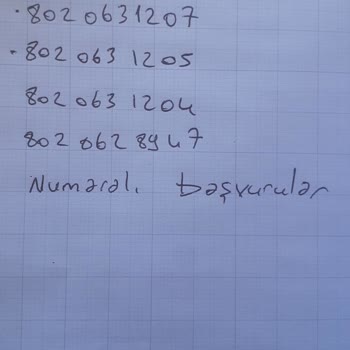 · 802 0631207
· 802 063 1205
802 063 1204
802 062 8947
Numaralı başvurular